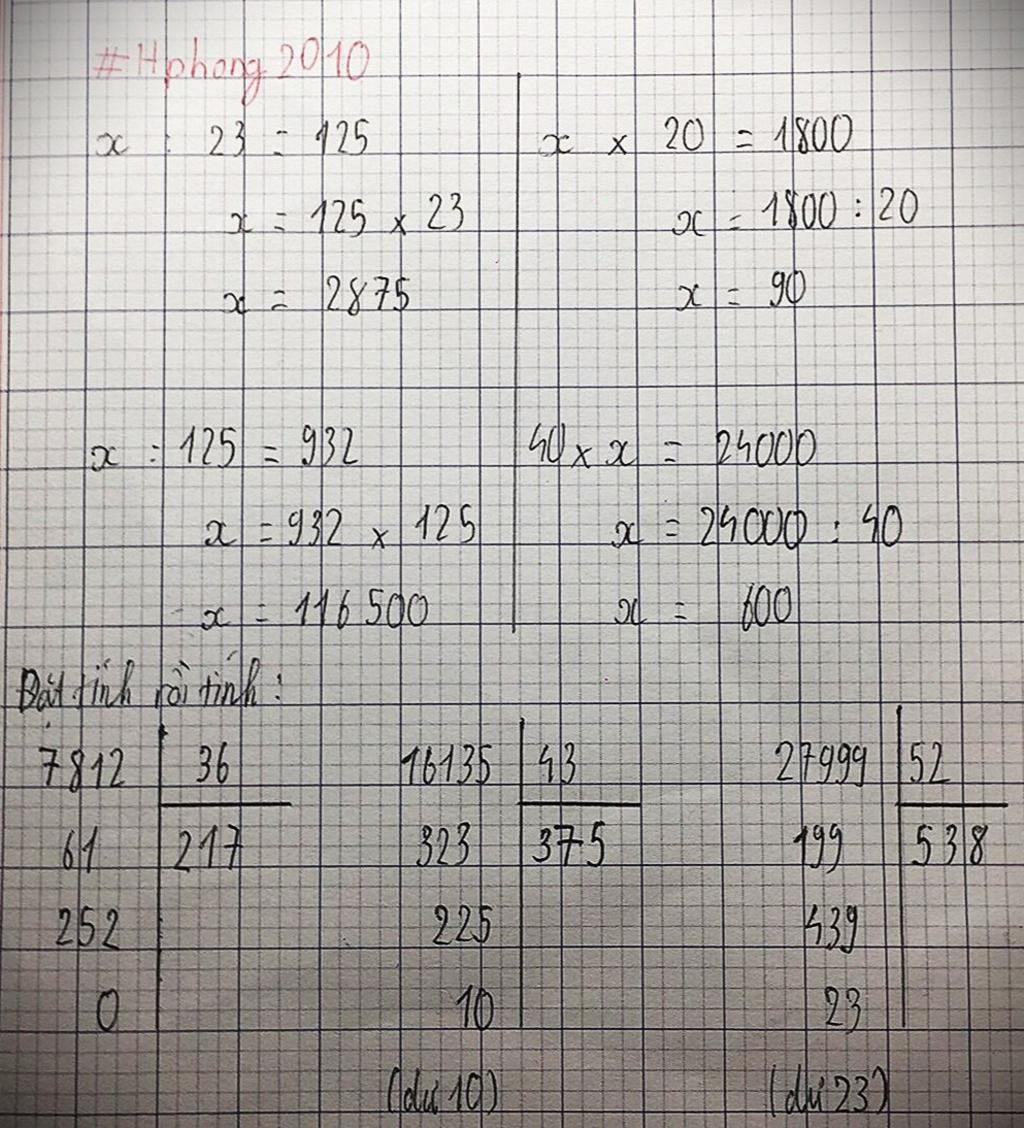 #Hphong 2010
x : 23 = 125
x = 125 x 23
x = 2875
x x 20 = 1800
x = 1800 : 20
x = 90
x : 125 = 932
x = 932 x 125
x = 116500
40 x x = 24000
x = 24000 : 40
x = 600
Đặt tính rồi tính :
7812 36
61 217
252
0
16135 43
323 375
225
10
(dư 10)
27999 52
199 538
439
23
(dư 23)